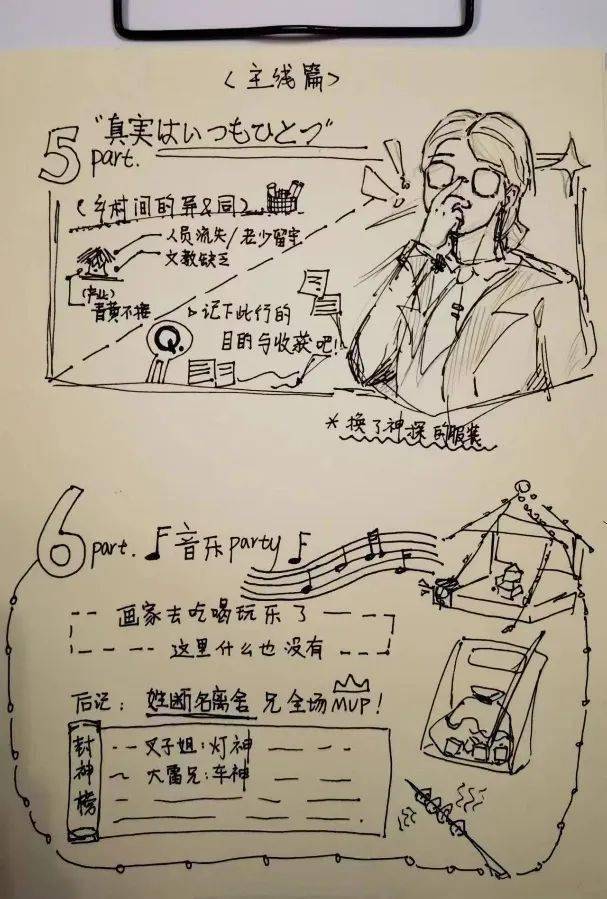 <主线篇>
5 part.
"真実はいつもひとつ"
(乡村间的异&同)
人员流失/老少留守
文教缺乏
(产业)
青黄不接
Q.
记下此行的
目的与收获吧!
*换了神探的服装
6 part. 音乐party
画家去吃喝玩乐了
这里什么也没有
后记: 姓断名离舍 兄全场MVP!
封神榜
叉子姐:灯神
大雷兄:车神